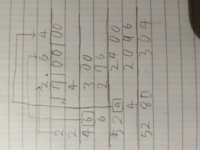 2.64
2 7 00 00
2 4
4 6 3 00
6 2 76
52 4 2400
4 2096
528 304